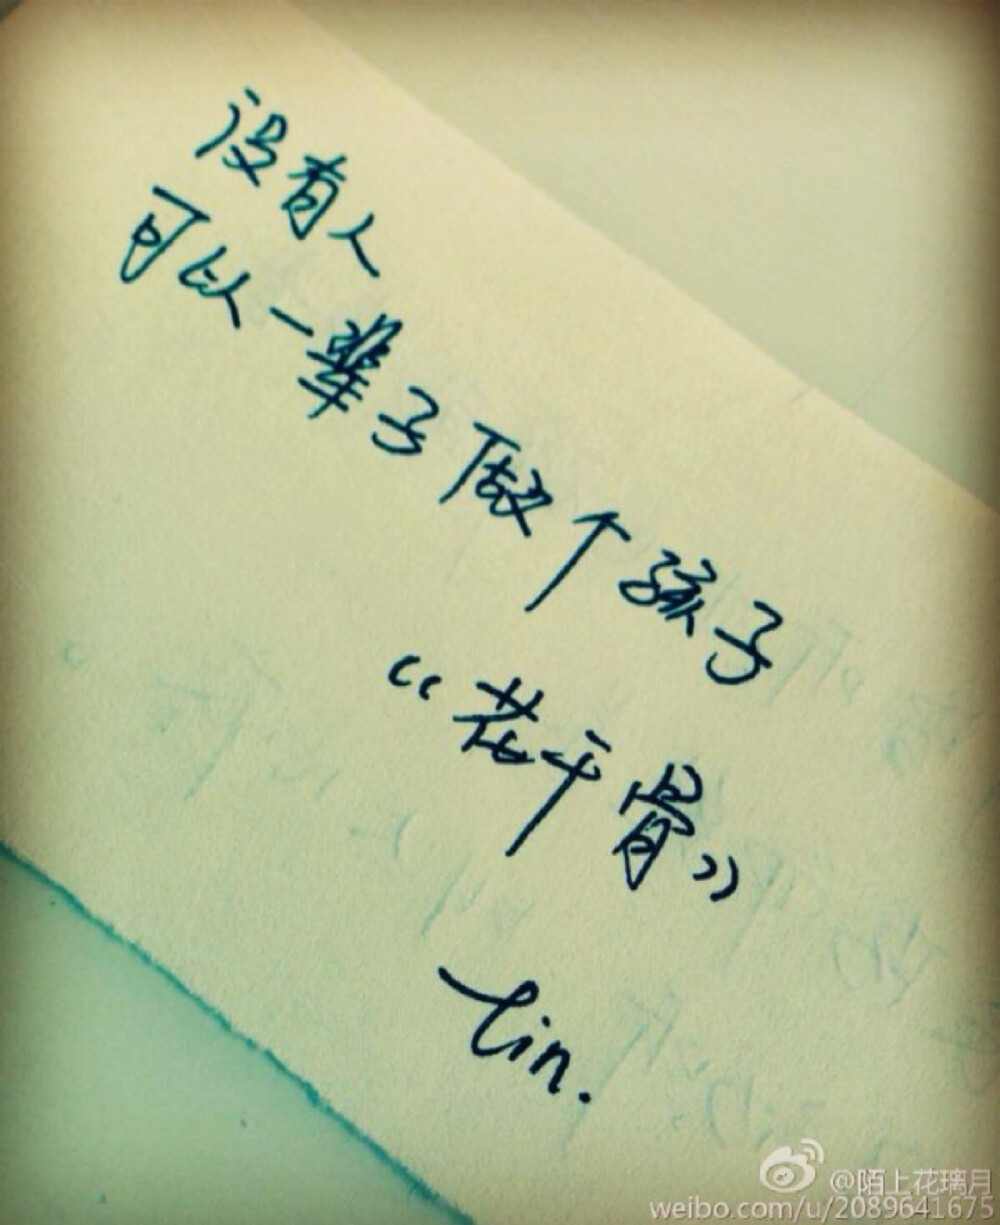 没有人
可以一辈子做个孩子
“花千骨》
Lin.
@陌上花璃月
weibo.com/u/2089641675